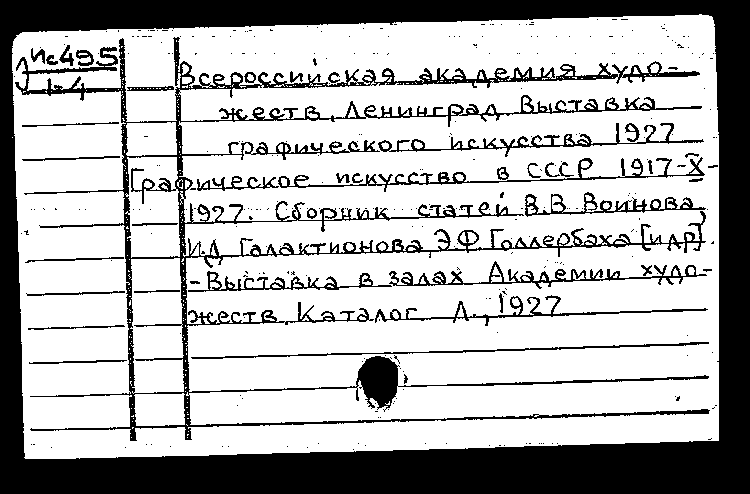 Ис495
1-4
Всероссийская академия худо-
жеств, Ленинград Выставка
графического искусства 1927
Графическое искусство в СССР 1917-X-
1927. Сборник статей В.В Воинова,
И.Д Галактионова, Э.Ф. Голлербаха [и др].
- Выставка в залах Академии худо-
жеств. Каталог Л., 1927